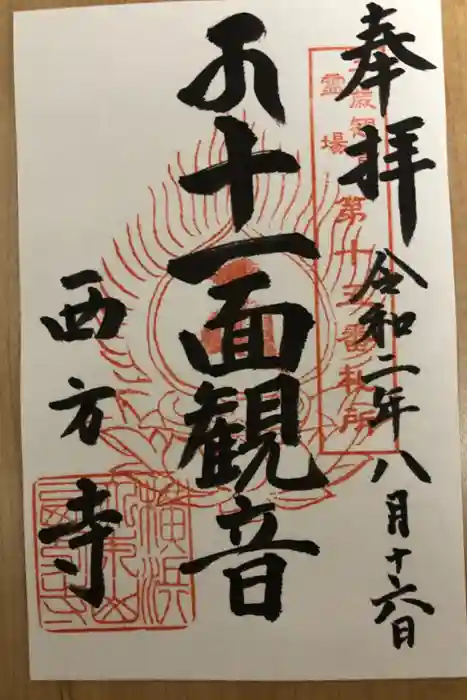 奉拝
令和二年八月十六日
霊場
第十三番札所
十一面観音
西方寺
横浜